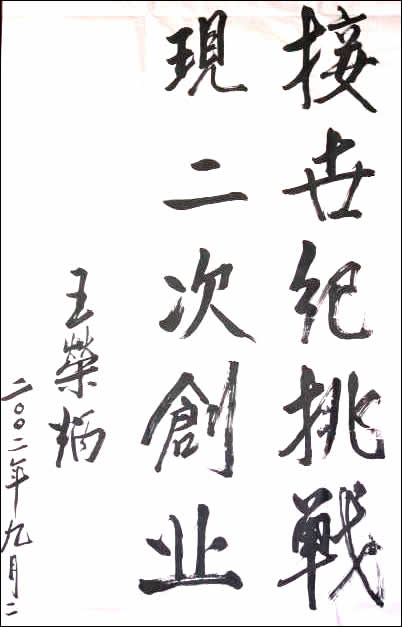 接世纪挑戦
現二次創业
王榮炳
二〇〇二年九月二